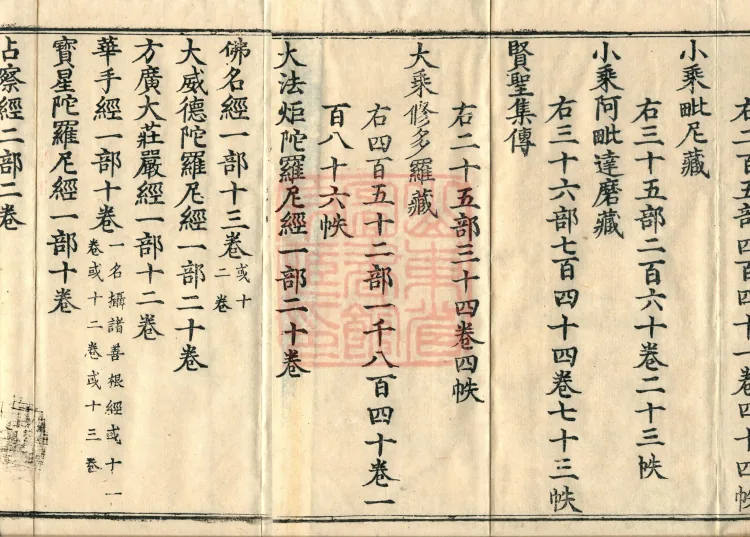 右二百五部四百四十一卷四十四帙
小乘毗尼藏
右三十五部二百六十卷二十三帙
小乘阿毗達磨藏
右三十六部七百四十四卷七十三帙
賢聖集傳
右二十五部三十四卷四帙
大乘修多羅藏
右四百五十二部一千八百四十卷一
百八十六帙
大法炬陀羅尼經一部二十卷
佛名經一部十三卷或十
二卷
大威德陀羅尼經一部二十卷
方廣大莊嚴經一部十二卷
華手經一部十卷一名攝諸善根經或十一
卷或十二卷或十三卷
寶星陀羅尼經一部十卷
占察經二部二卷